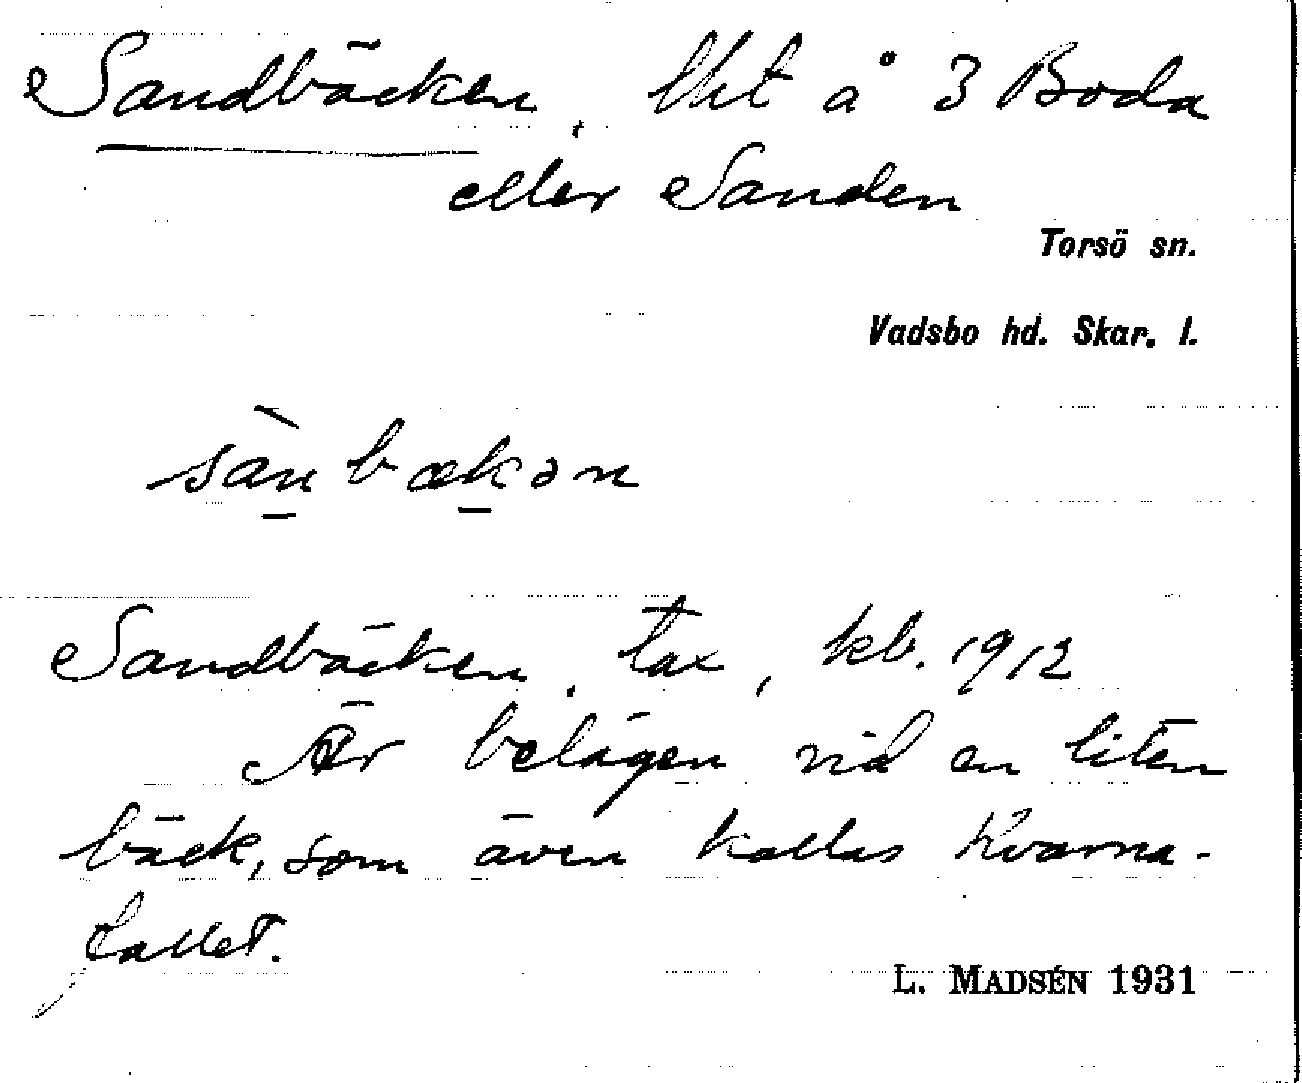 Sandbäcken, lht å 3 Boda
eller Sanden
Torsö sn.
Vadsbo hd. Skar. l.
sàṉbæḵən
Sandbäcken, tax, kb. 1912
Är belägen vid en liten
bäck, som även kallas Kvarna-
fallet.
L. MADSÉN 1931